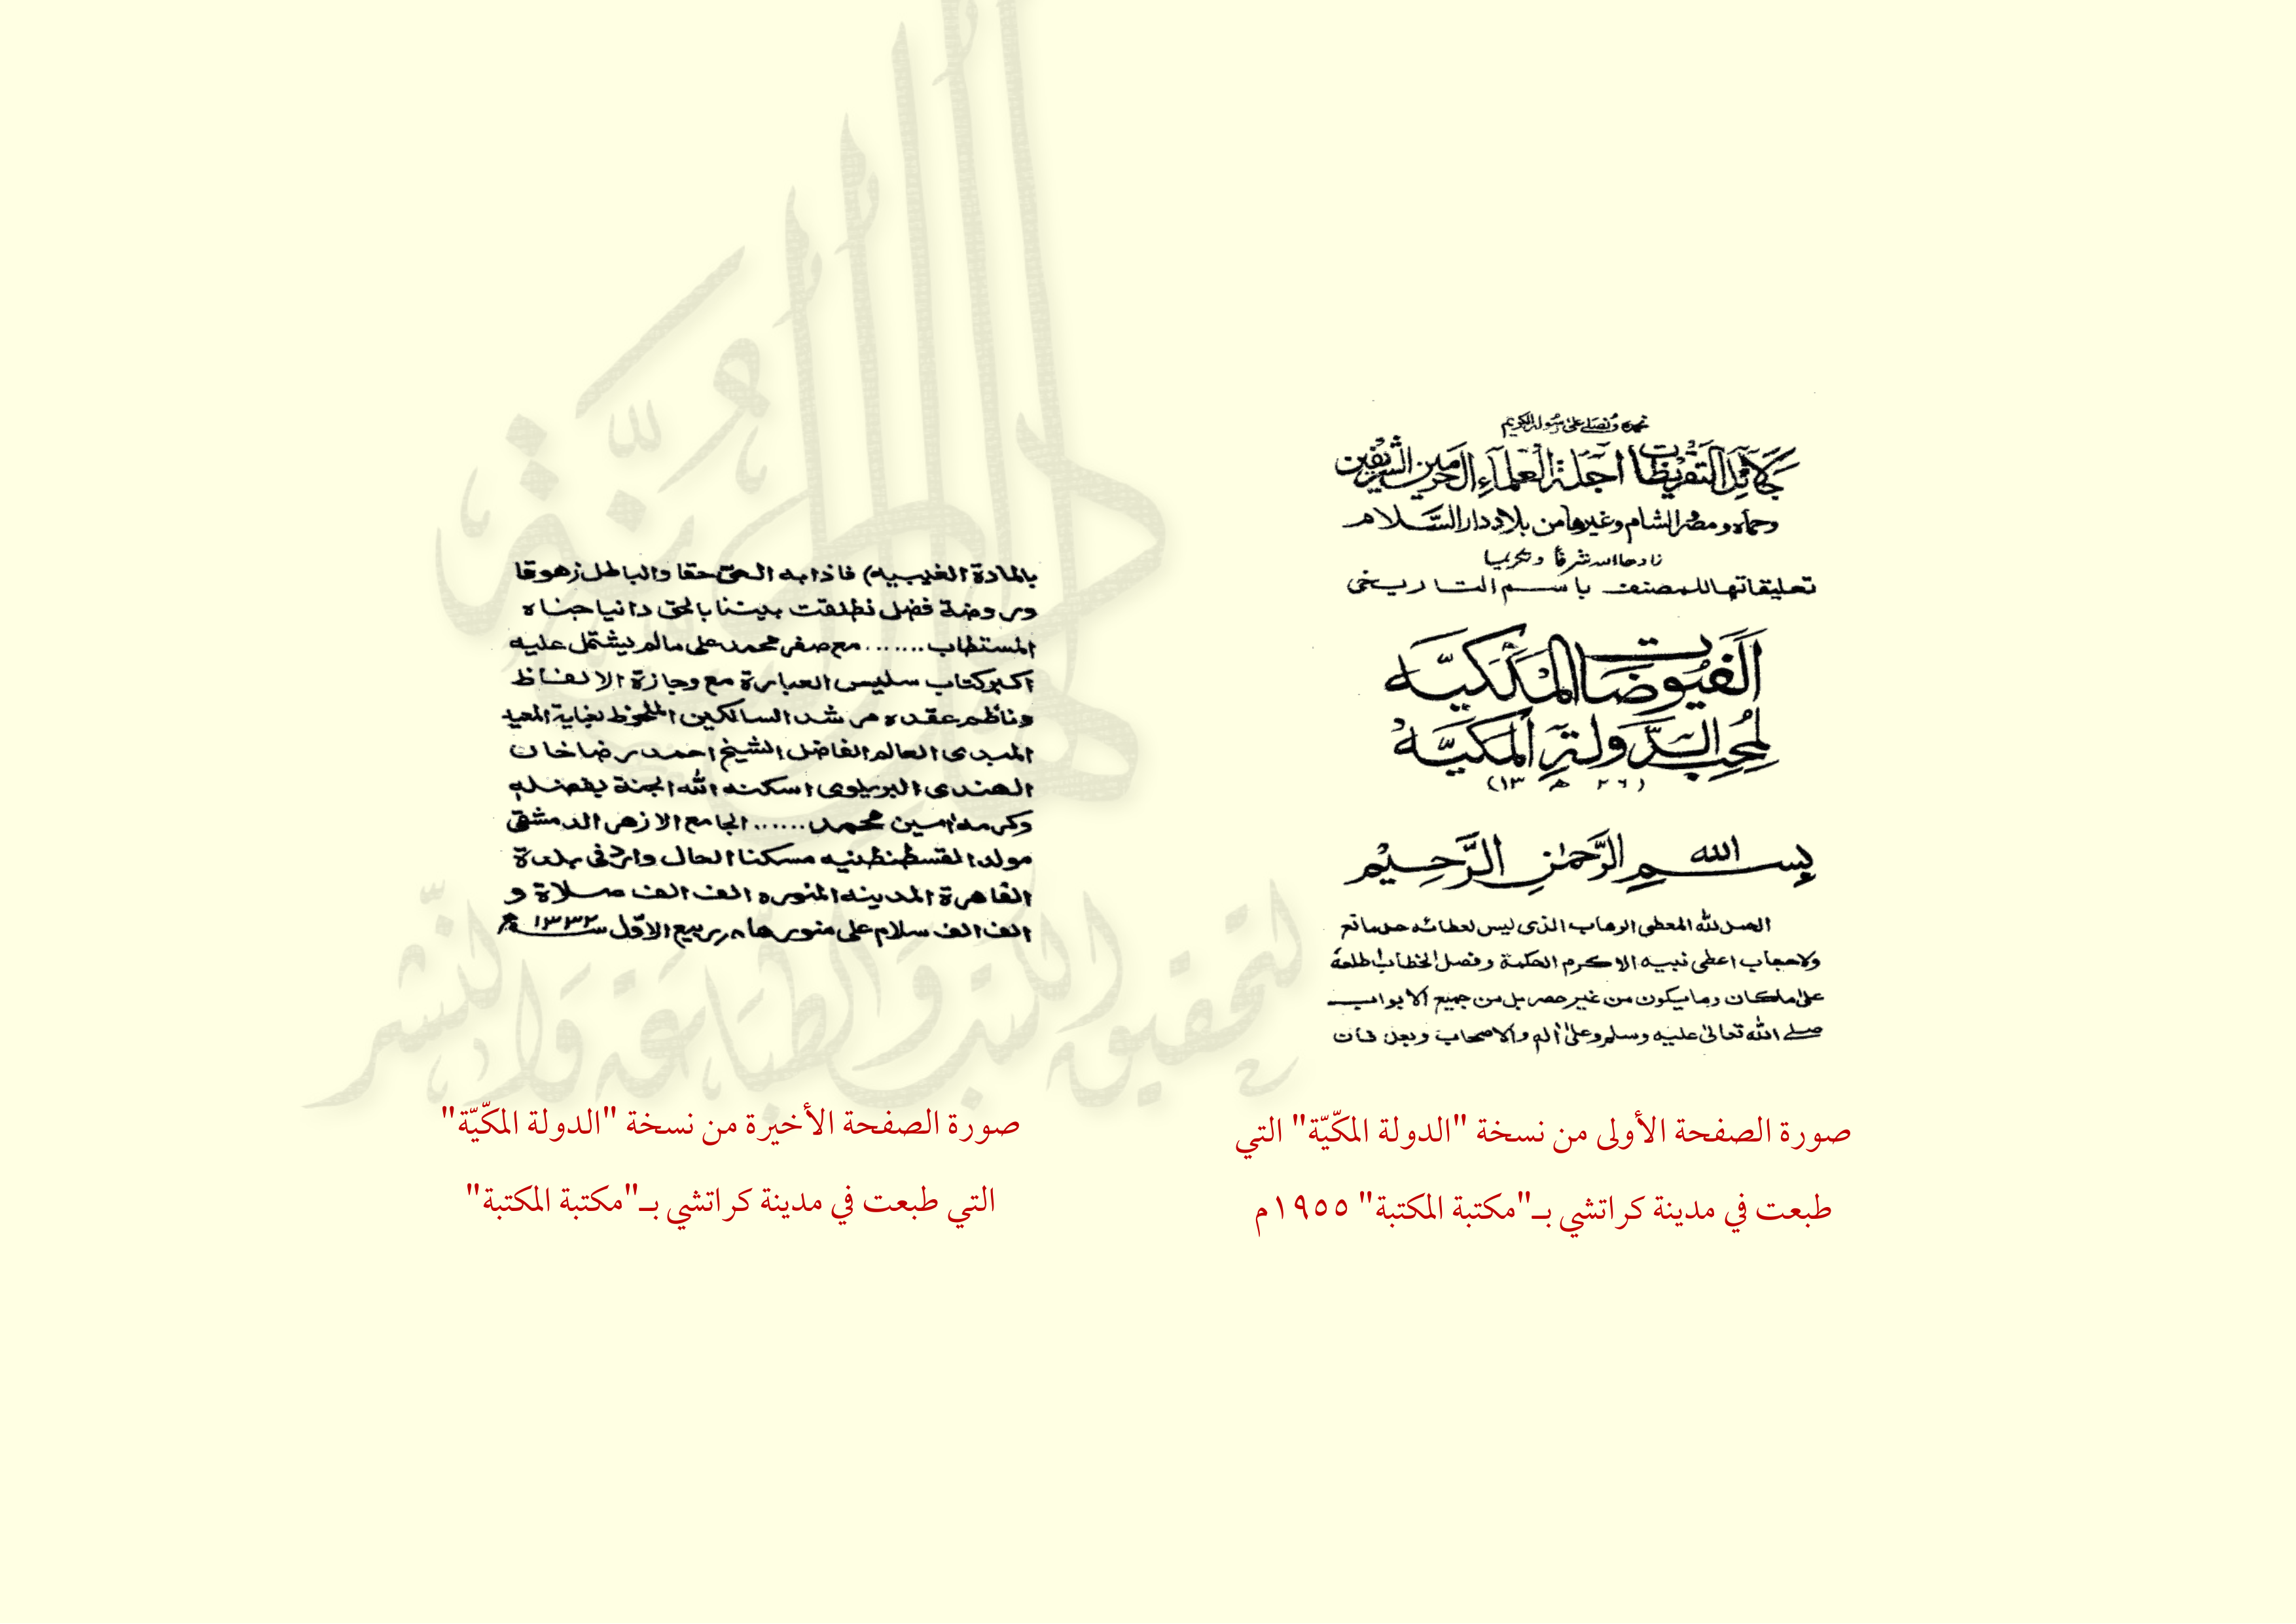 نحمده ونصلے علیٰ رسولہ الکریم
جلائل التقریظات اجلة العلماء الحرمین الشریفین
وحماه ومصر الشام وغیرها من بلاد دار السلام
زادها الله شرفاً وتکریما
تعلیقاتها للمصنف باسم التاریخی
الفیوضات الملکیه
لمحب الدولة المکیه
(۱۳ھ۲۶)
بسم الله الرحمٰن الرحیم
الحمد لله المعطی الوهاب الذی لیس لعطائه حد مانع
ولاحجاب اعطی نبیه الاکرم الحکمة وفصل الخطاب اطلعه
علیٰ ماکان وما یکون من غیر حصر بل من جمیع الابواب
صلے الله تعالیٰ علیه وسلم وعلیٰ اٰله والاصحاب وبعد فان
صورة الصفحة الأولى من نسخة "الدولة المكّيّة" التي
طبعت في مدينة كراتشي بـ"مكتبة المكتبة" ١٩٥٥م
بالمادة الغیبیه) فاذا به الحق حقا والباطل زهوقا
وروضة فضل نطقت بیننا بالحق دانیا جناه
المستطاب ....... مع صغر محمد علی مالم یشتمل علیه
اکبر کتاب سلیس العبارة مع وجازة الالفاظ
وناظم عقده مرشد السالکین الملحوظ بغایة المعید
المبدی العالم الفاضل الشیخ احمد رضا خان
الهندی البریلوی اسکنه الله الجنة بفضله
وکرمه امین محمد ...... الجامع الازهر الدمشقی
مولد القسطنطنیه مسکنا الحال وارد فی بلدة
القاهرة المدینه المنوره الف الف صلاة و
الف الف سلام علی منورها ۸ ربیع الاوّل سنة ۱۳۳۲ھ
صورة الصفحة الأخيرة من نسخة "الدولة المكّيّة"
التي طبعت في مدينة كراتشي بـ"مكتبة المكتبة"
دار أهل السنة
لتحقيق الكتب والطباعة والنشر